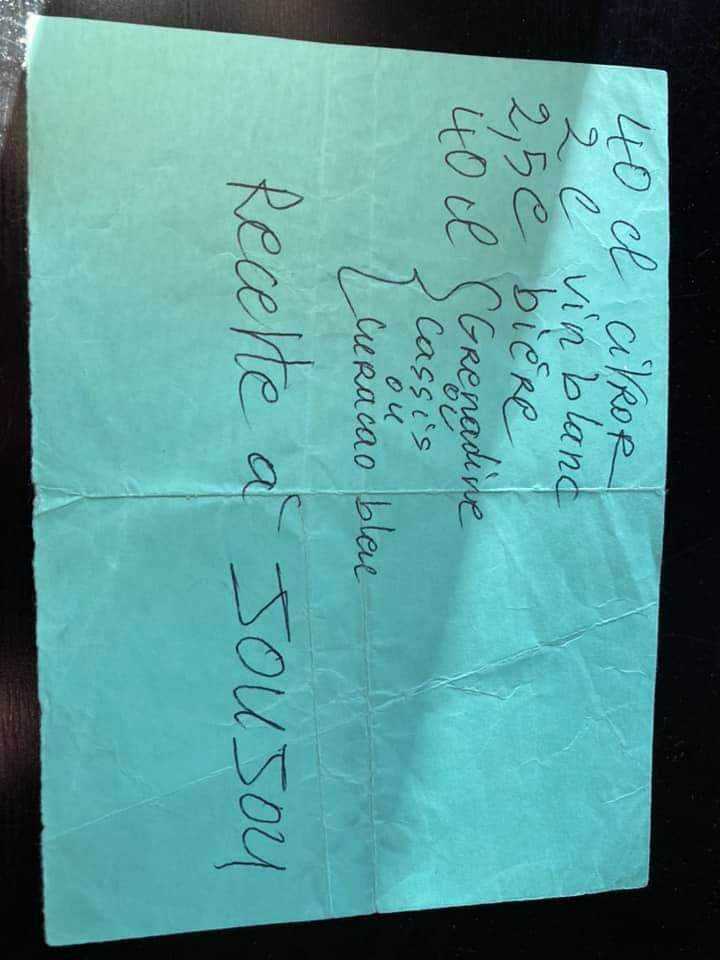 40 cl citron
2 l vin blanc
2,5 l bière
40 cl { Grenadine
ou
Cassis
ou
Curacao bleu
Recette à JOUJOU